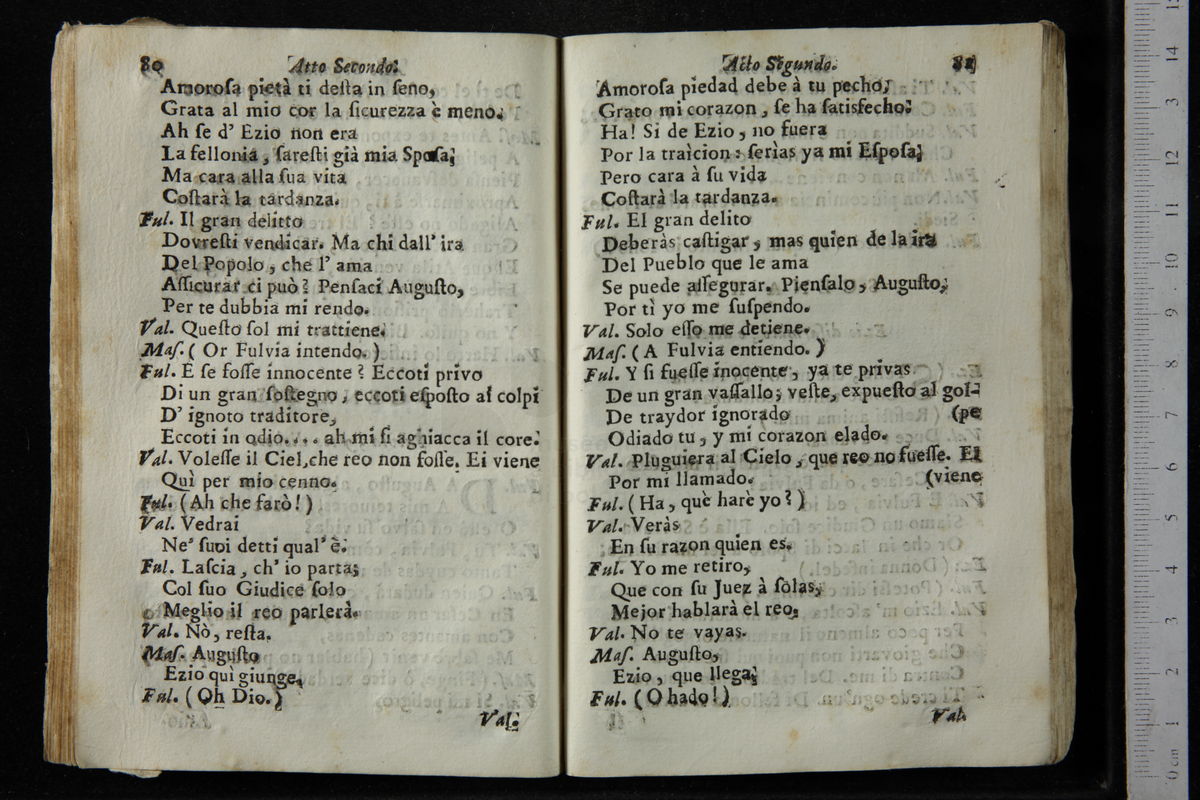 80 Atto Secondo.
Amoroſa pietà ti deſta in ſeno,
Grata al mio cor la ſicurezza è meno.
Ah ſe d' Ezio non era
La fellonia, ſareſti già mia Spoſa;
Ma cara alla ſua vita
Coſtarà la tardanza.
Ful. Il gran delitto
Dovreſti vendicar. Ma chi dall' ira
Del Popolo, che l' ama
Aſſicurar ci può? Penſaci Auguſto,
Per te dubbia mi rendo.
Val. Queſto ſol mi trattiene.
Maſ. ( Or Fulvia intendo. )
Ful. E ſe foſſe innocente? Eccoti privo
Di un gran ſoſtegno, eccoti eſpoſto ai colpi
D' ignoto traditore,
Eccoti in odio.... ah mi ſi aghiacca il core.
Val. Voleſſe il Ciel, che reo non foſſe. Ei viene
Quì per mio cenno.
Ful. (Ah che farò!)
Val. Vedrai
Ne' ſuoi detti qual' è.
Ful. Laſcia, ch' io parta;
Col ſuo Giudice ſolo
Meglio il reo parlerà.
Val. Nò, reſta.
Maſ. Auguſto
Ezio quì giunge.
Ful. (Oh Dio.)
Val.
Acto Segundo. 81
Amoroſa piedad debe à tu pecho;
Grato mi corazon, ſe ha ſatisfecho.
Ha! Si de Ezio, no fuera
Por la traìcion: ſerìas ya mi Eſpoſa;
Pero cara à ſu vida
Coſtarà la tardanza.
Ful. El gran delito
Deberàs caſtigar, mas quien de la ira
Del Pueblo que le ama
Se puede aſſegurar. Pienſalo, Auguſto,
Por tì yo me ſuſpendo.
Val. Solo eſſo me detiene.
Maſ. (A Fulvia entiendo.)
Ful. Y ſi fueſſe inocente, ya te privas
De un gran vaſſallo; veſte, expueſto al gol-
De traydor ignorado (pe
Odiado tu, y mi corazon elado.
Val. Pluguiera al Cielo, que reo no fueſſe. El
Por mi llamado. (viene
Ful. (Ha, què harè yo?)
Val. Veràs
En ſu razon quien es.
Ful. Yo me retiro,
Que con ſu Juez à ſolas,
Mejor hablarà el reo.
Val. No te vayas.
Maſ. Auguſto,
Ezio, que llega.
Ful. (O hado!)
Val.